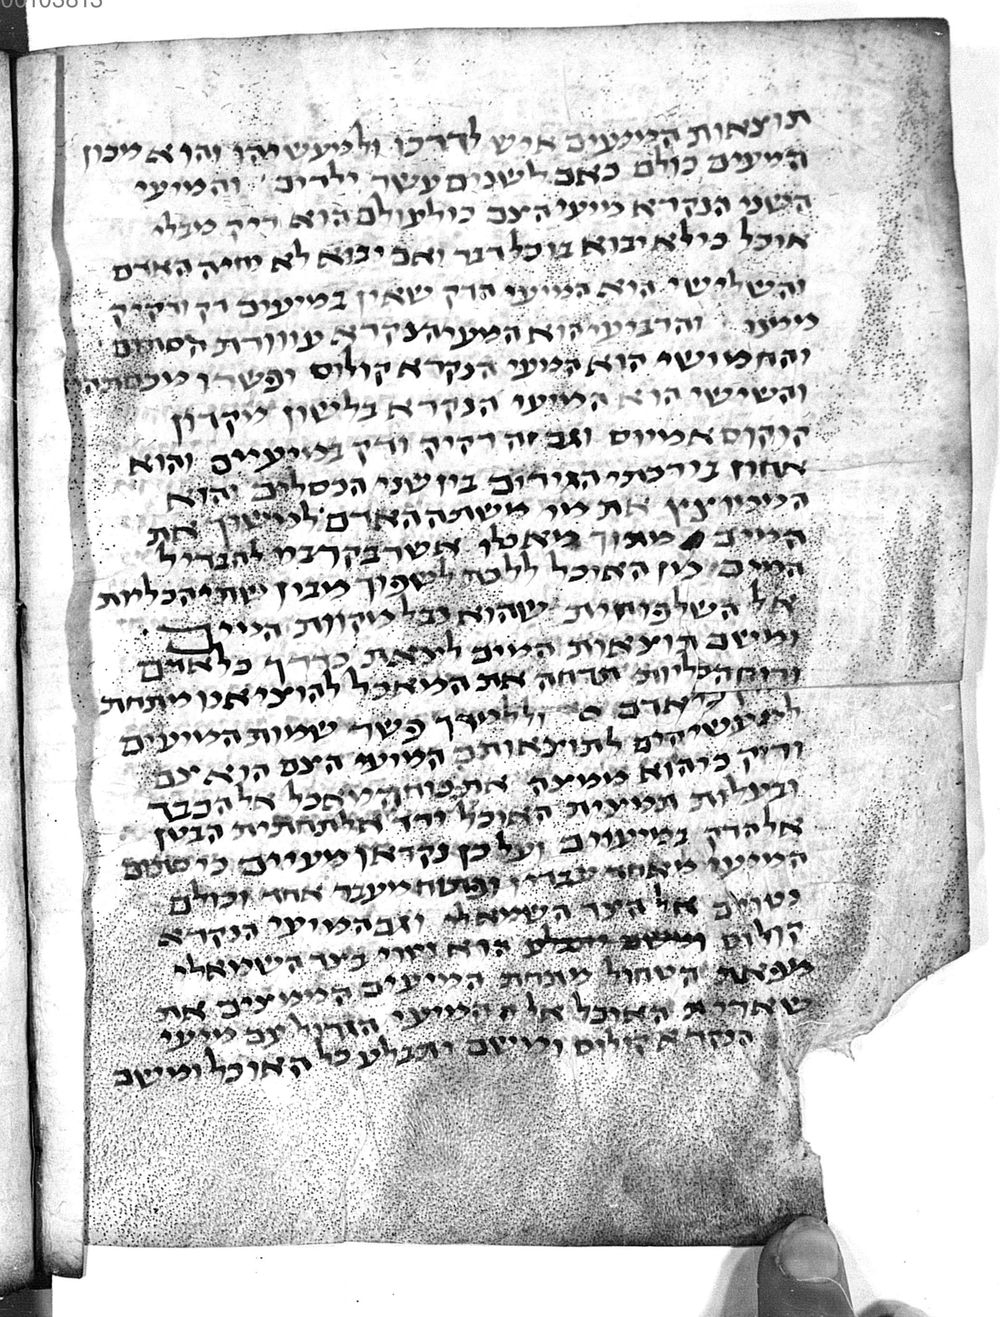 00103813
תוצאות המיעים איש לדרכו ולמעשיהו והוא מכון
המעים כולם כאם לשנים עשר ילדים והמיעי
השני הנקרא מיעי הצם כי לעולם הוא ריק מבלי
אוכל כי לא יבוא בו כל דבר ואם יבוא לא יחיה האדם
והשלישי הוא המיעי הדק שאין במיעים דק ורקיק
ממנו והרביעי הוא המעי הנקרא עוורת הסתום
והחמישי הוא המעי הנקרא קולוס ופשרו
והשישי הוא המיעי הנקרא בלשון מקדון
וגם זה רקיק ודק במיעיים והוא
אחוז בירכתי הגוים בין שני הכסלים והוא
את מי משתה האדם למשוך את
המים מתוך מאכלו אשר בקרבו להבדיל
המים מן האוכל ללכת לשפוך מבין שתי הכליות
אל השלפוחית שהוא נבל מקוות המים
ומשם תוצאות המים לצאת כדרך כל אדם
ורוח הכליות תדחה את המאכל להוציאנו מתחת
לאדם וללמדך פשר שמות המיעים
למעשיהם לתוצאותם המיעי הצם הוא צם
וריק כי הוא ממצה את כוח המאכל אל הכבד
ובעלות תמצית האוכל ירד אל תחתית הבטן
אל הדק במיעיים ועל כן נקראו מעיים כי סתום
המיעי מאחד עבריו ופתוח מעבר אחד וכולם
נטוים אל הצד השמאלי וגם המיעי הנקרא
קולוס הוא נטוי בצד השמאלי
מפאת הטחול מתחת המיעים הממצים את
שארית האוכל אל המיעי הגדול עם מיעי
הנקרא קולוס ומשם ותבלע כל האוכל ומשם